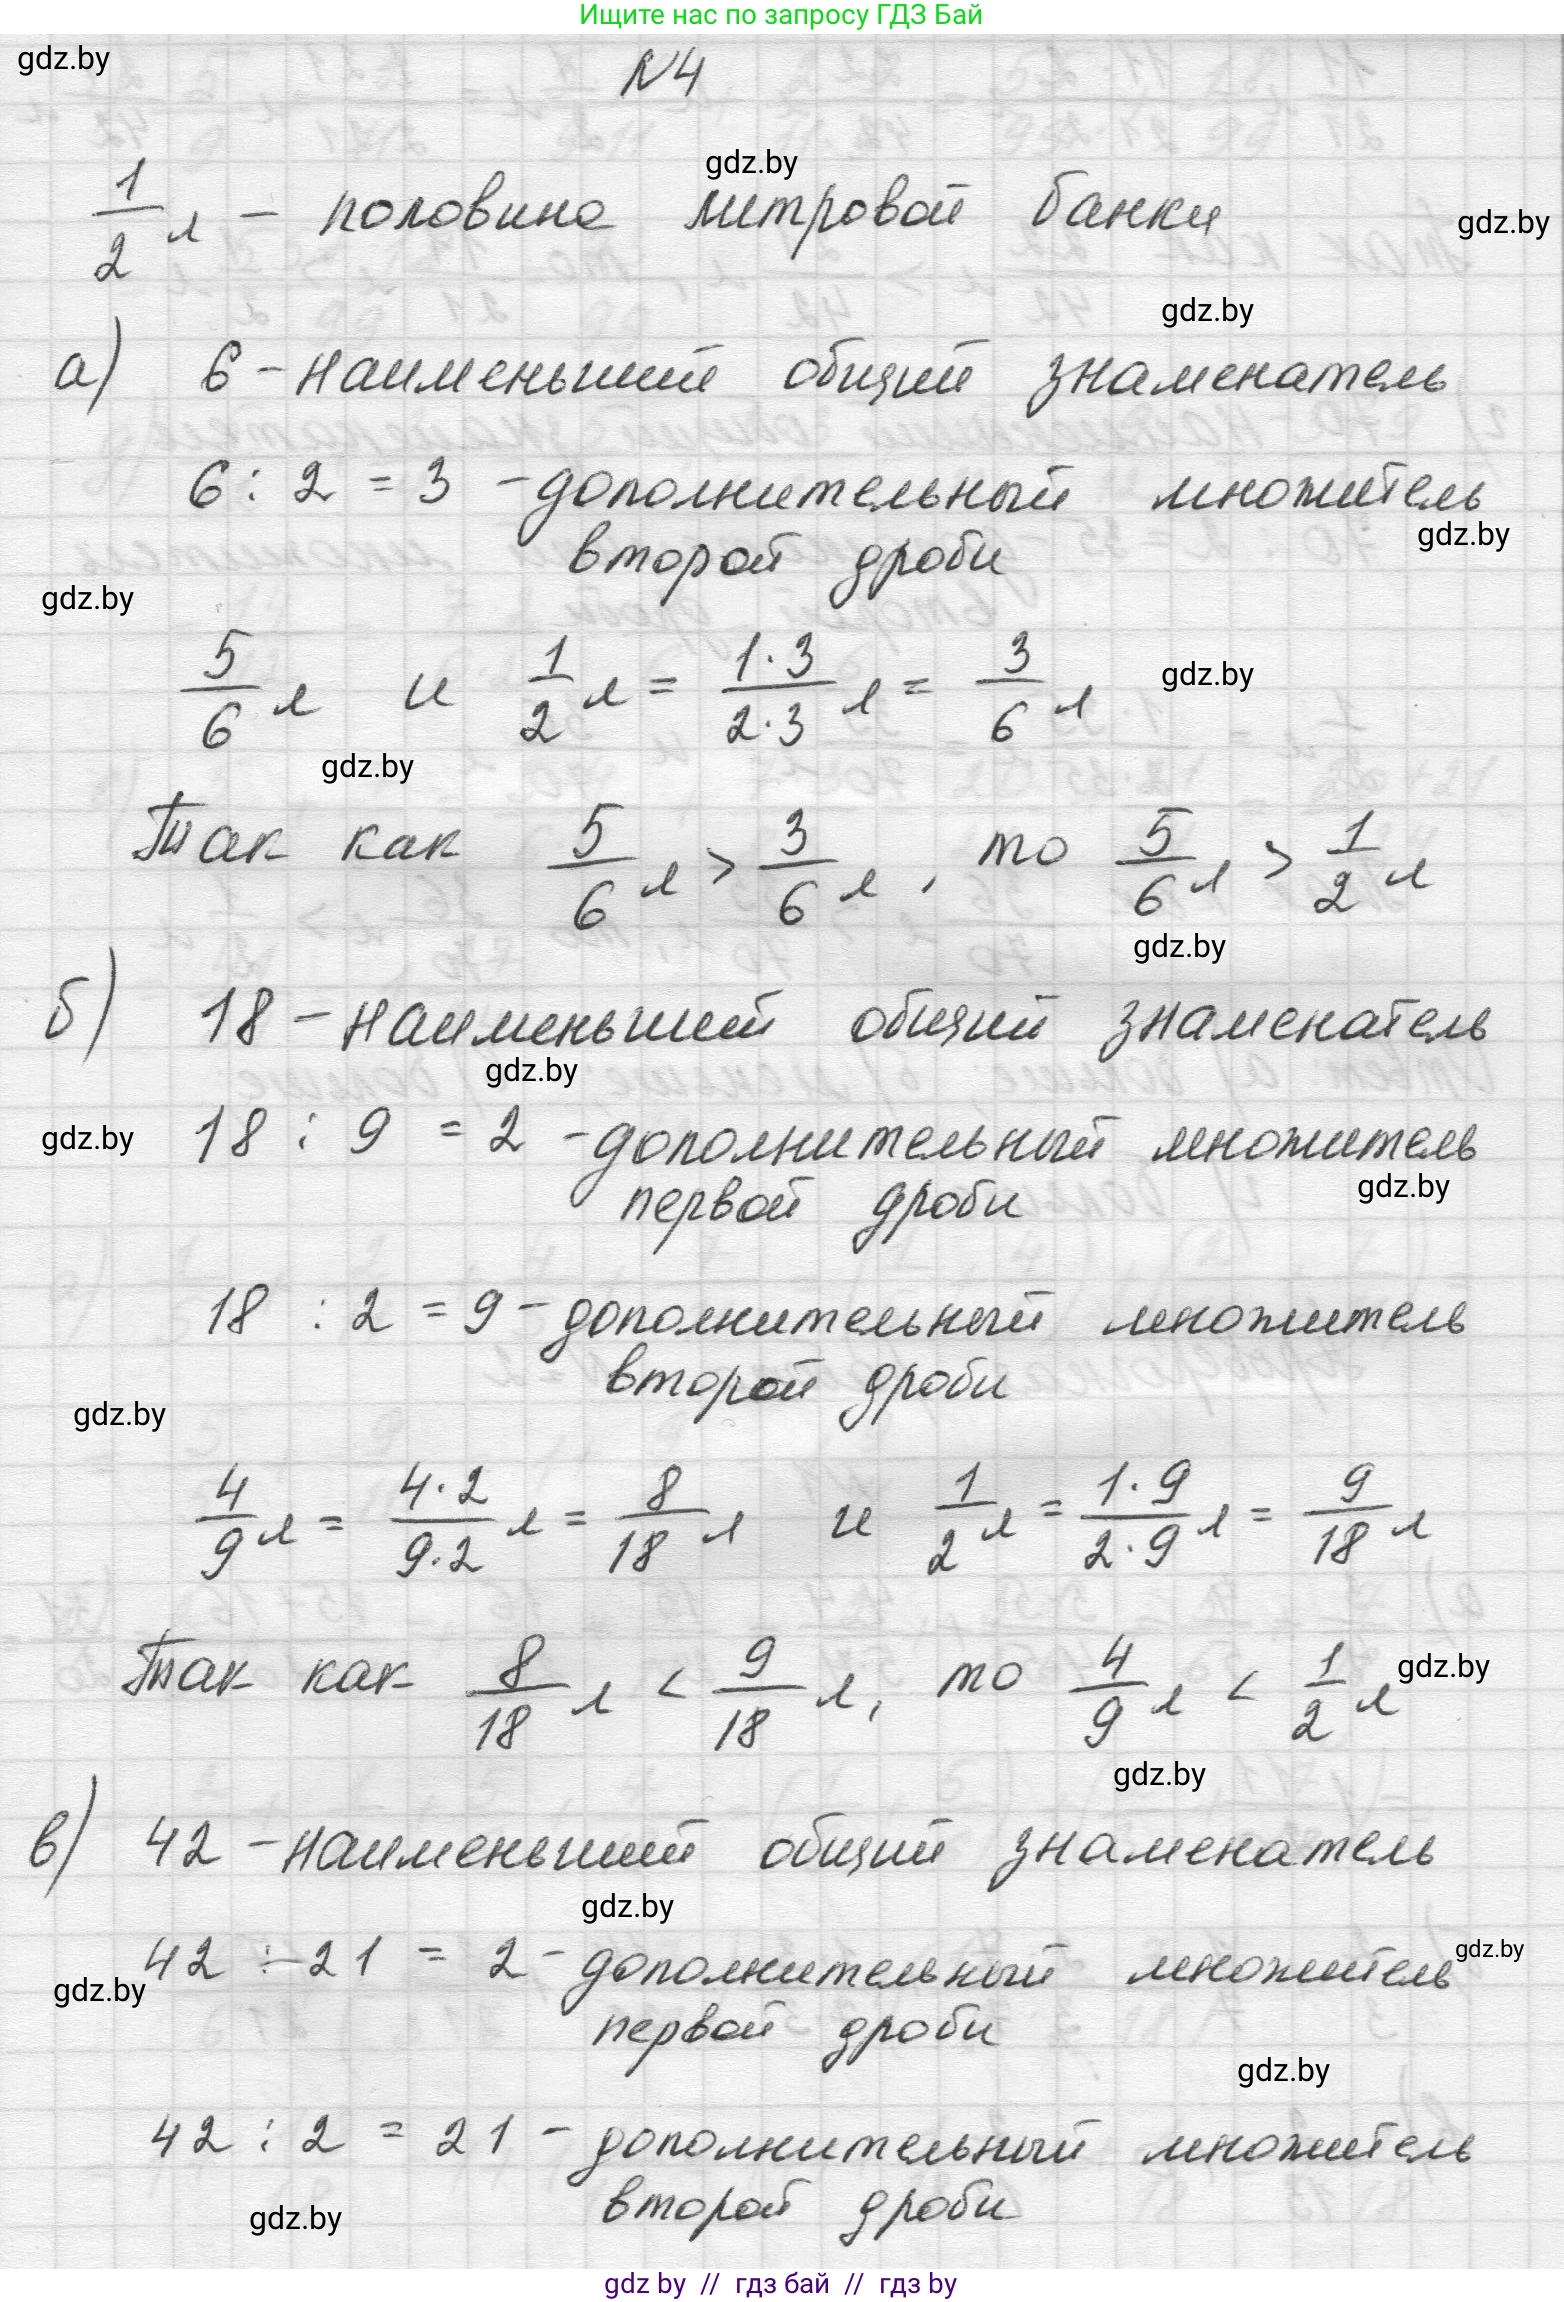 Ищите нас по запросу ГДЗ Бай
gdz.by
N4
gdz.by
1/2 л – половина литровой банки
gdz.by
gdz.by
а) 6 – наименьший общий знаменатель
6 : 2 = 3 – дополнительный множитель
gdz.by
второй дроби
gdz.by
5/6 л и 1/2 л = 1·3/2·3 л = 3/6 л
gdz.by
gdz.by
Так как 5/6 л > 3/6 л, то 5/6 л > 1/2 л
gdz.by
б) 18 – наименьший общий знаменатель
gdz.by
gdz.by
18 : 9 = 2 – дополнительный множитель
gdz.by
первой дроби
18 : 2 = 9 – дополнительный множитель
второй дроби
gdz.by
4/9 л = 4·2/9·2 л = 8/18 л и 1/2 л = 1·9/2·9 л = 9/18 л
Так как 8/18 л < 9/18 л, то 4/9 л < 1/2 л
gdz.by
gdz.by
в) 42 – наименьший общий знаменатель
gdz.by
42 : 21 = 2 – дополнительный множитель
gdz.by
gdz.by
первой дроби
gdz.by
42 : 2 = 21 – дополнительный множитель
второй дроби
gdz.by
gdz by // гдз бай // гдз by